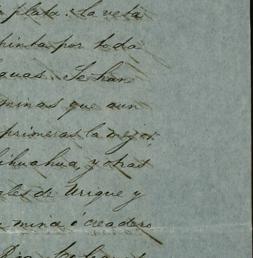 plata. La veta
pinta por toda
guas. Se han
minas que aun
primeras la mejor,
ihuahua, y otras
ales de Urique y
mina o creadero